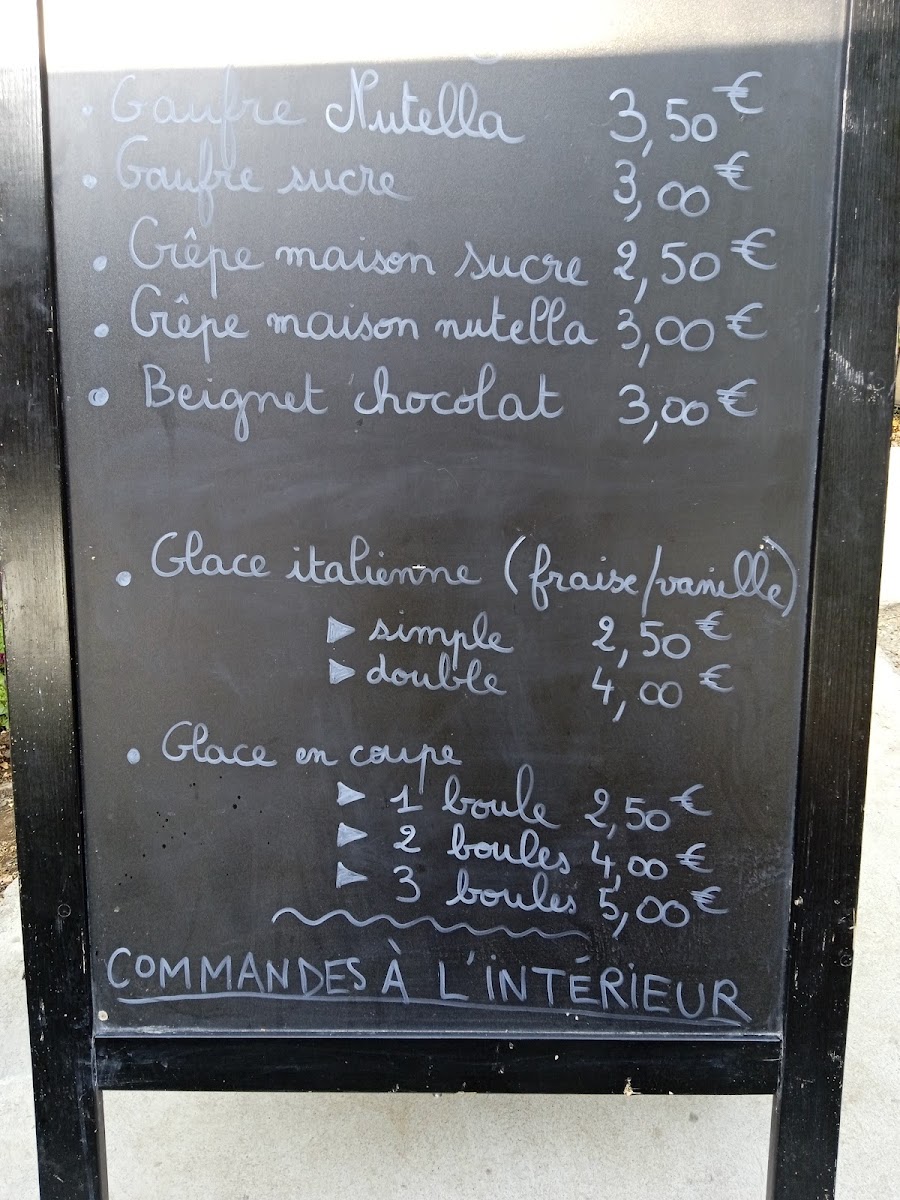 • Gaufre Nutella 3,50 €
• Gaufre sucre 3,00 €
• Crêpe maison sucre 2,50 €
• Crêpe maison nutella 3,00 €
• Beignet chocolat 3,00 €
• Glace italienne (fraise/vanille)
▶ simple 2,50 €
▶ double 4,00 €
• Glace en coupe
▶ 1 boule 2,50 €
▶ 2 boules 4,00 €
▶ 3 boules 5,00 €
COMMANDES À L'INTÉRIEUR